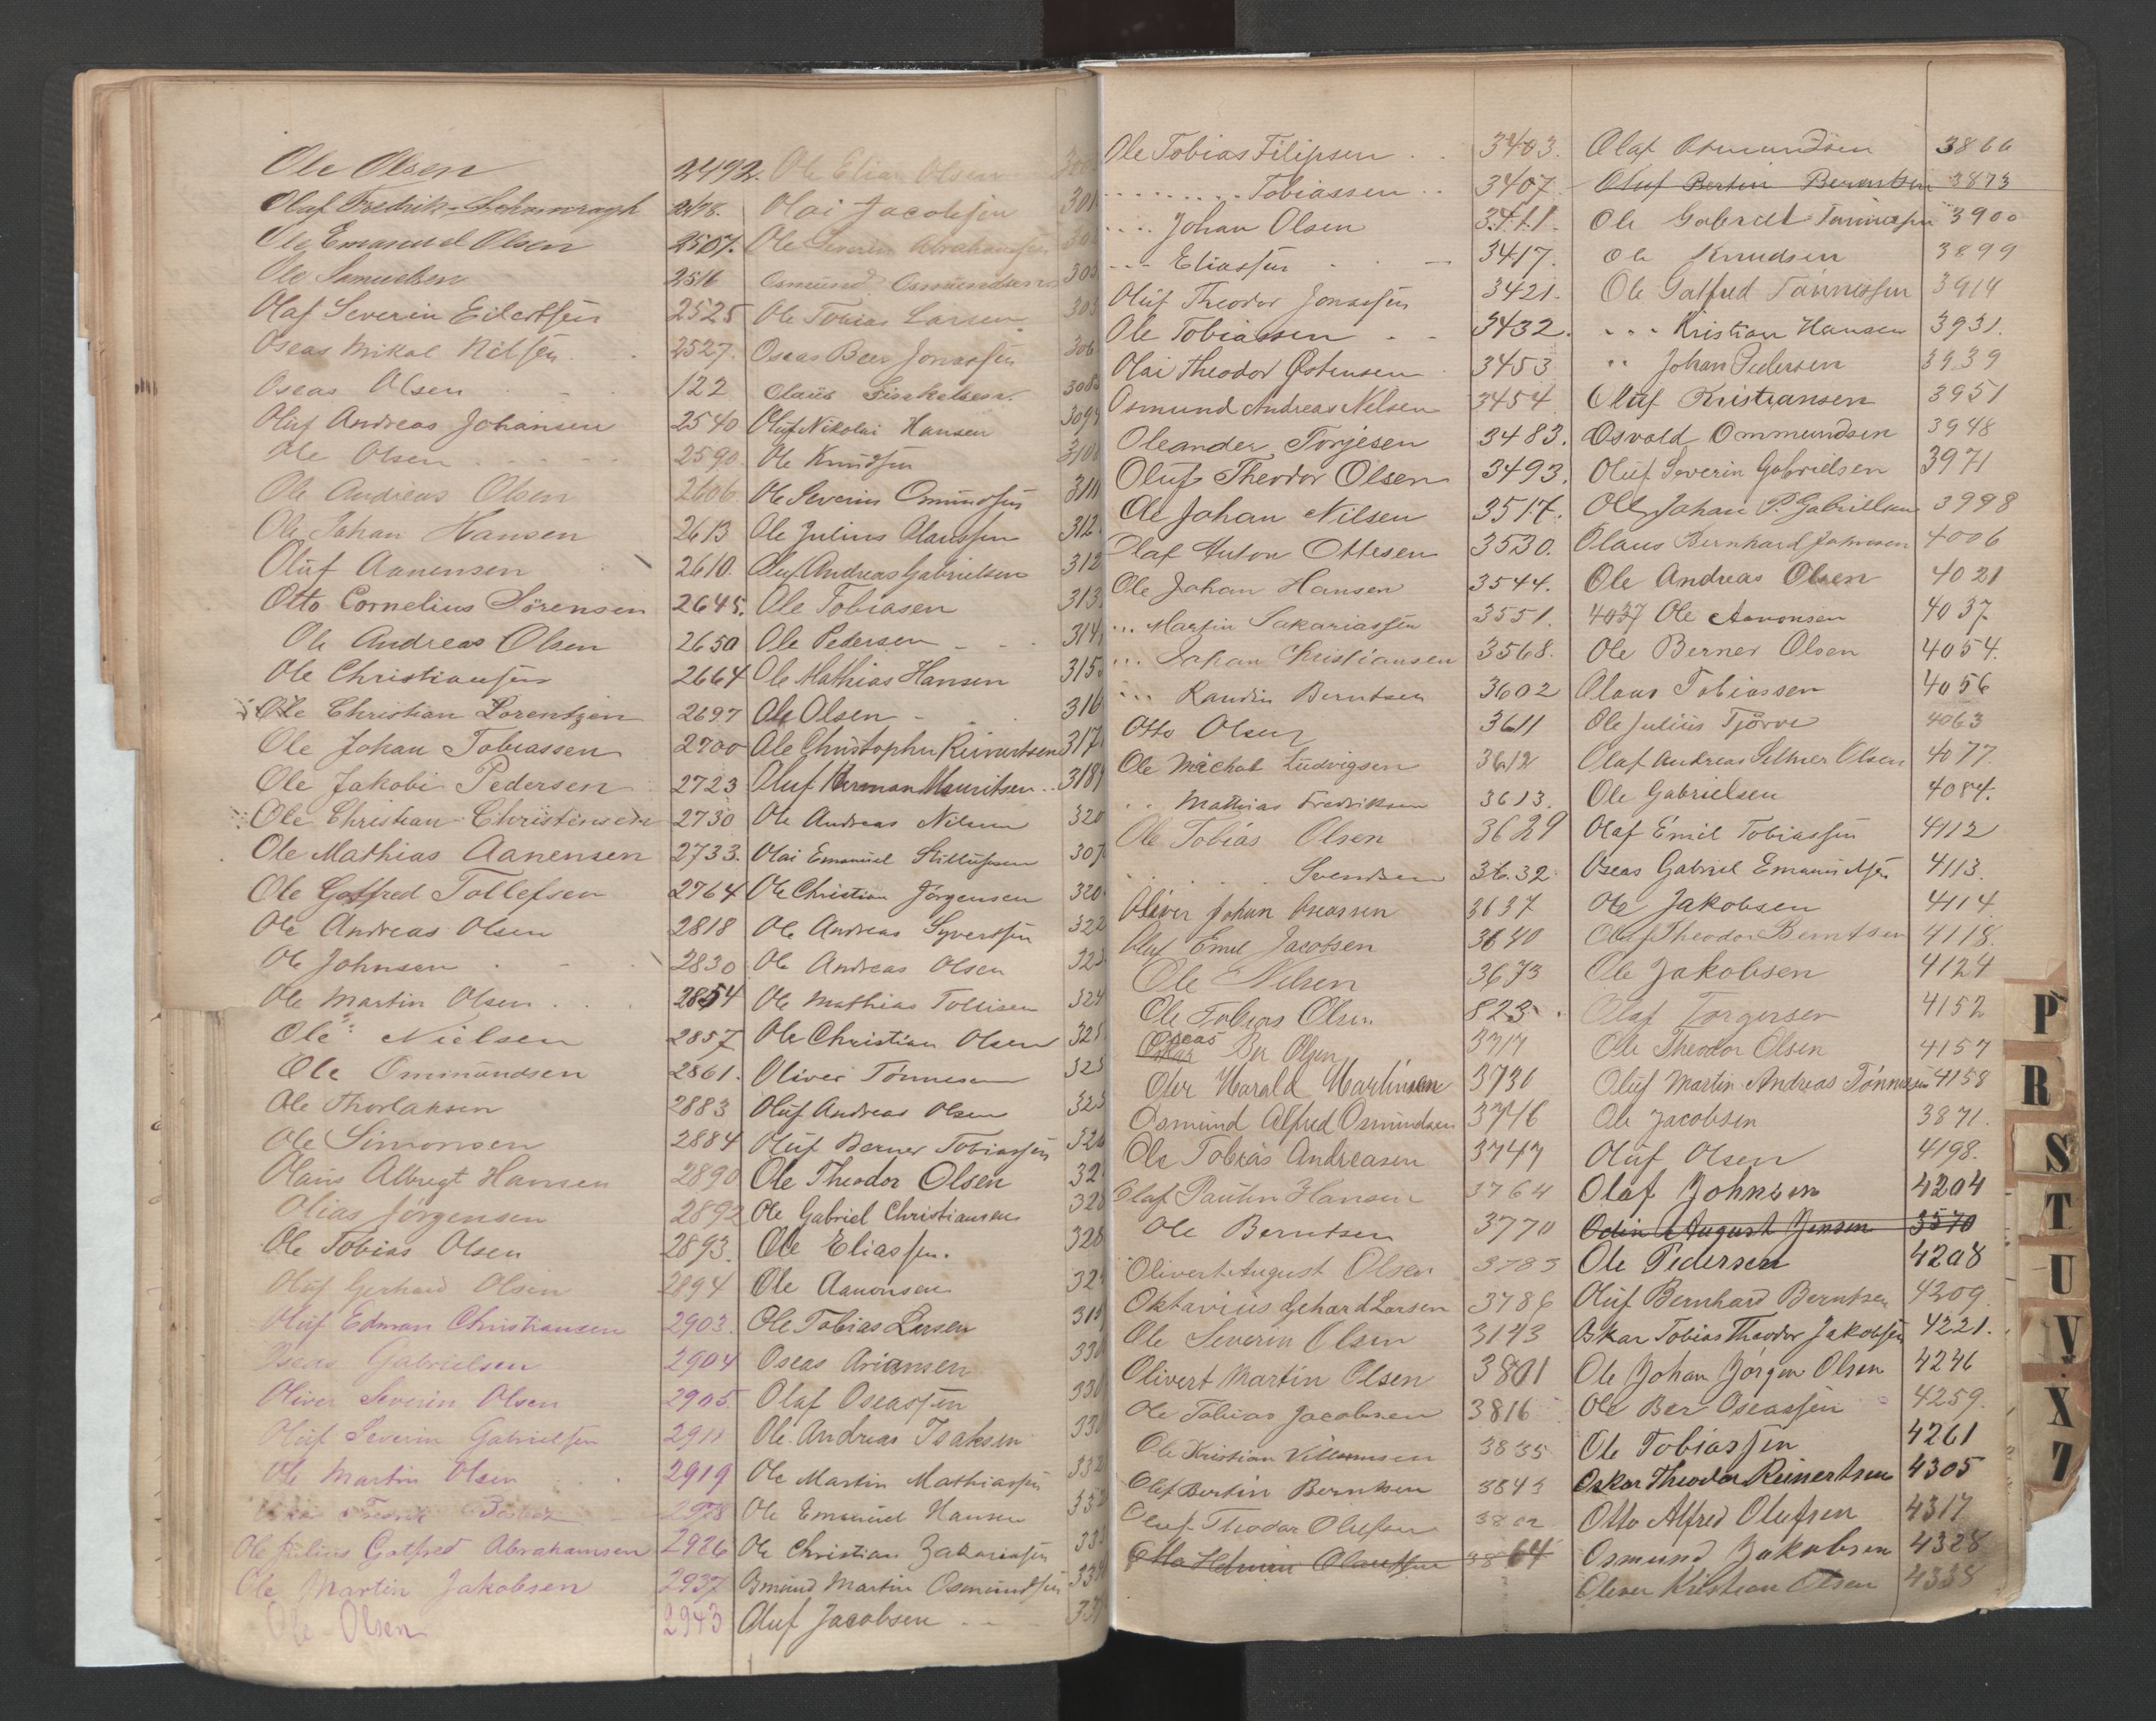 Ole Olsen 2492.
Olaf Fredrik 2498.
Ole Emanuel Olsen 2507.
Ole Samuelsen 2516
Olaf Severin Eilertsen 2525
Oseas Mikal Nilsen 2527.
Oseas Olsen 122
Oluf Andreas Johansen 2540
Ole Olsen 2590
Ole Andreas Olsen 2606
Ole Johan Hansen 2613
Oluf Aanensen 2610.
Otto Cornelius Sörensen 2645.
Ole Andreas Olsen 2650
Ole Christiansen 2664
Ole Christian Lorentzen 2697
Ole Johan Tobiassen 2700
Ole Jakobi Pedersen 2723
Ole Christian Christensen 2730
Ole Mathias Aanensen 2733.
Ole Gotfred Tollefsen 2764
Ole Andreas Olsen 2818
Ole Johnsen 2830
Ole Martin Olsen 2854
Ole Nielsen 2857
Ole Ommundsen 2861.
Ole Thorlaksen 2883
Ole Simonsen 2884
Olaus Albregt Hansen 2890
Olias Jörgensen 2892
Ole Tobias Olsen 2893.
Oluf Gerhard Olsen 2894
Oluf Edman Christiansen 2903.
Oseas Gabrielsen 2904
Oliver Severin Olsen 2905.
Oluf Severin Gabrielsen 2911
Ole Martin Olsen 2919
Ole Julius Gotfred Abrahamsen 2926
Ole Martin Jakobsen 2937
Ole Olsen 2943
Ole Elias Olsen
Olai Jacobsen 301
Ole Severin Abrahamsen
Osmund Osmundsen 303
Ole Tobias Larsen 303
Oseas Beer Jonassen 306
Olaus 308
Oluf Nikolai Hansen 309
Ole Knudsen 310
Ole Severin Omundsen 311
Ole Julius Olaussen 312
Oluf Andreas Gabrielsen 312
Ole Tobiasen 313
Ole Pedersen 314
Ole Mathias Hansen 315
Ole Olsen 316
Ole Christopher Reinertsen 317
Oluf Herman Mauritsen 318
Ole Andreas Nilsen 320
Olai Emanuel 307
Ole Christian Jörgensen 320
Ole Andreas Syvertsen 322
Ole Andreas Olsen 323
Ole Mathias Tollisen 324
Ole Christian Olsen 325
Oliver Tönnesen 325
Oluf Andreas Olsen 325
Oluf Berner Tobiassen 326
Ole Theodor Olsen 32
Ole Gabriel Christiansen 328
Ole Eliassen. 328
Ole Aanonsen 32
Ole Tobias Larsen 315
Oseas Ariansen 330
Olaf Oseassen 330
Ole Andreas Isaksen 330
Ole Martin Mathiassen 332
Ole Emanuel Hansen 332
Ole Christian Zakariasen 333
Osmund Martin Osmundsen 334
Oluf Jacobsen 33
Ole Tobias Filipsen 3403.
Tobiassen 3407
Johan Olsen 3411.
Eliassen 3417.
Oluf Theodor Jonassen 3421.
Ole Tobiassen 3432.
Olai Theodor Östensen 3453
Osmund Andreas Nilsen 3454
Oleander Torjesen 3483.
Oluf Theodor Olsen 3493.
Ole Johan Nilsen 3517.
Olaf Anton Ottesen 3530.
Ole Johan Hansen 3544.
Martin Sakariassen 3551.
Johan Kristiansen 3568.
Randin Berntsen 3602
Otto Olsen 3611
Ole Michal Ludvigsen 3612
Mathias Fredriksen 3613.
Ole Tobias Olsen 3629
Svendsen 3632
Oliver Johan Oseassen 3637
Oluf Emil Jacobsen 3640
Ole Nilsen 3673
Ole Tobias Olsen 823
Oseas
Oskar Ber Olsen 3717
Oter Harald Martinsen 3730
Osmund Alfred Osmundsen 3746
Ole Tobias Andreasen 3747
Olaf Paulin Hansen 3764
Ole Berntsen 3770
Olivert August Olsen 3783
Oktavius Gehard Larsen 3786
Ole Severin Olsen 3143
Olivert Martin Olsen 3801
Ole Tobias Jacobsen 3816
Ole Kristian Villumsen 3835
Oluf Bertin Berntsen 3843
Oluf Theodor Olufsen
Otto Olaussen 3864
Olaf Osmundsen 3866
Oluf Bertin Berntsen 3873
Ole Gabriel Tönnesen 3900
Ole Knudsen 3899
Ole Gotfred Tönnessen 3914
Kristian Hansen 3931.
Johan Pedersen 3939
Oluf Kristiansen 3951
Osvald Ommundsen 3948
Oluf Severin Gabrielsen 3971
Ole Johan P. Gabrielsen 3998
Olaus Bernhard Johnsen 4006
Ole Andreas Olsen 4021
4037 Ole Aanonsen 4037.
Ole Berner Olsen 4054.
Olaus Tobiassen 4056
Ole Julius Tjörve 4063
Olaf Andreas Selmer Olsen 4077
Ole Gabrielsen 4084.
Olaf Emil Tobiassen 4112
Oseas Gabriel 4113.
Ole Jakobsen 4114
Oluf Theodor Berntsen 4118.
Ole Jakobsen 4124
Olaf Torgersen 4152
Ole Theodor Olsen 4157
Oluf Martin Andreas Tönnesen 4158
Ole Jacobsen 3871.
Oluf Olsen 4198.
Olaf Johnsen 4204
Odin August Jensen 3570
Ole Pedersen 4208
Oluf Bernhard Berntsen 4209
Oskar Tobias Theodor Jakobsen 4221.
Ole Johan Jörgen Olsen 4246
Ole Ber Oseassen 4259
Ole Tobiassen 4261
Oskar Theodor Reinertsen 4305
Otto Alfred Olufsen 4317
Osmund Jakobsen 4328
Oliver Kristian Olsen 4338
P
R
S
T
U
V
X
Z